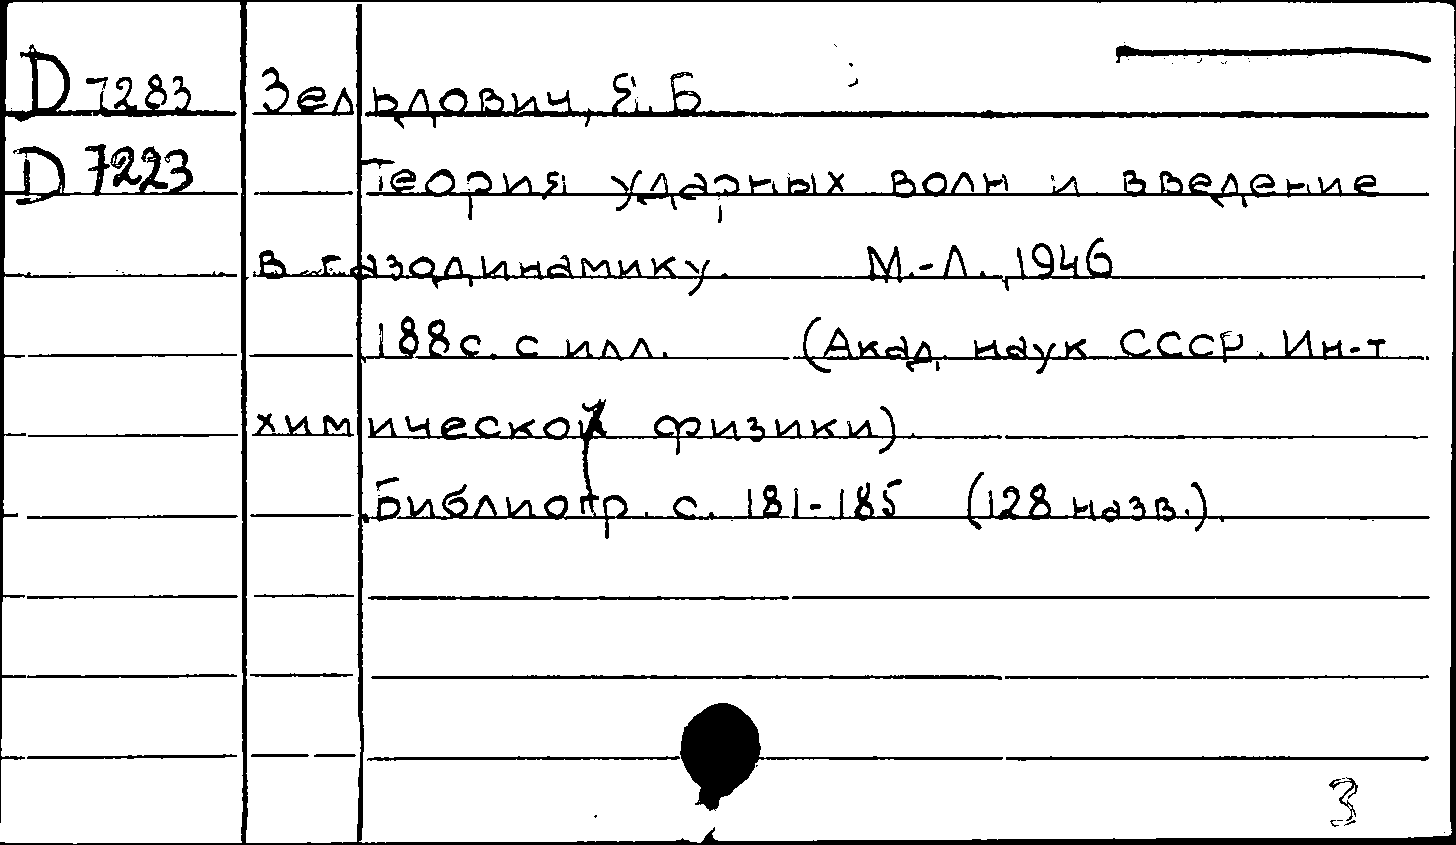 D 7283 Зельдович, Я. Б
D 7223 Теория ударных волн и введение
в газодинамику. М.-Л., 1946
188 с. с илл. (Акад. наук СССР. Ин-т
химической физики).
Библиогр. с. 181-185 (128 назв.).
3